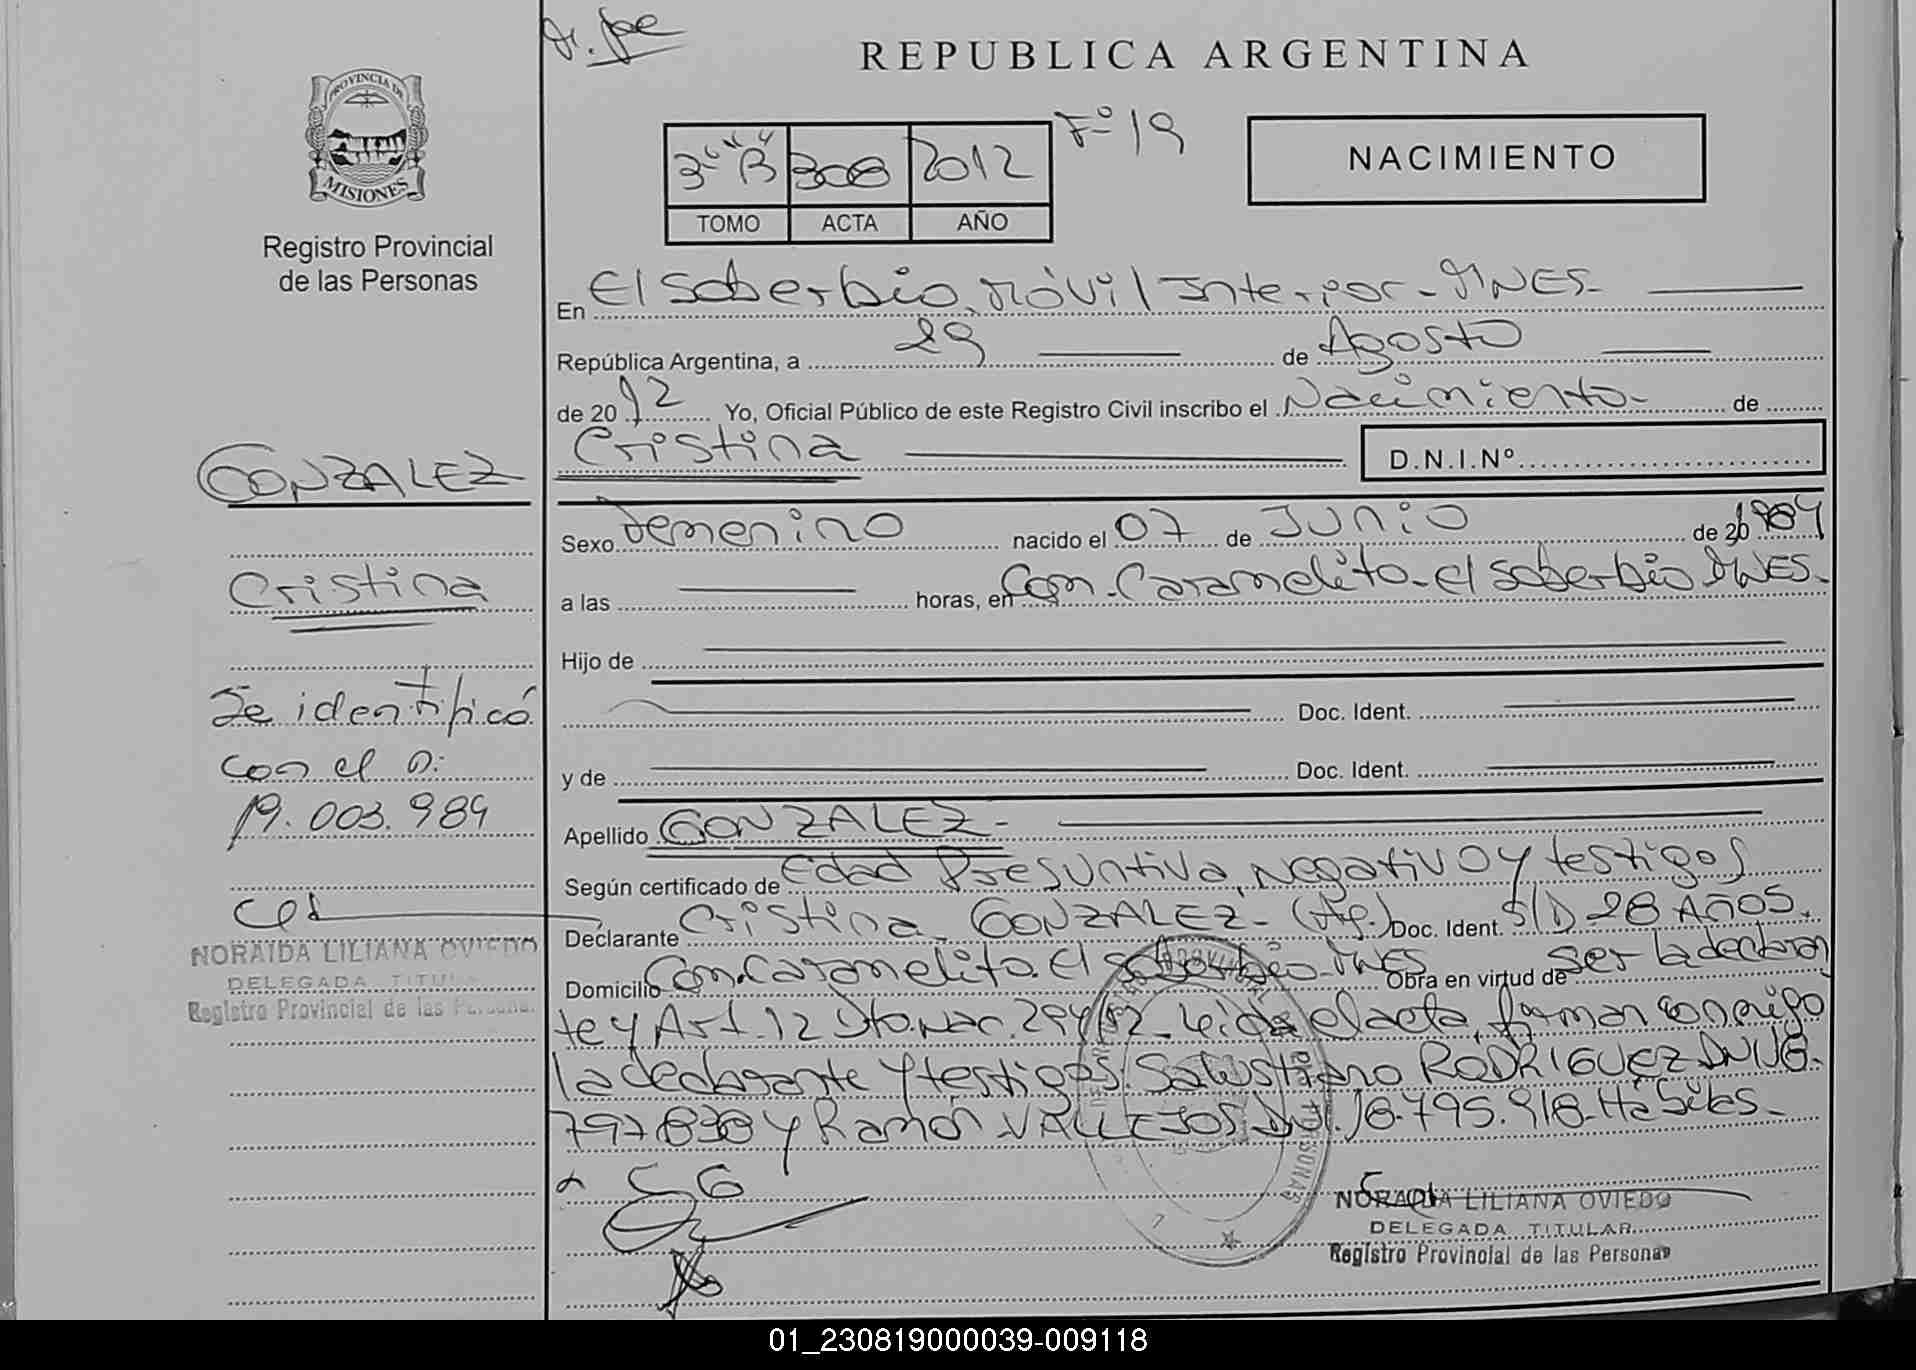 REPUBLICA ARGENTINA
PROVINCIA DE
MISIONES
Registro Provincial
de las Personas
3º "B" 308 2012 Fº 19
TOMO ACTA AÑO
NACIMIENTO
En El Soberbio, Móvil Interior - MNES -
República Argentina, a 29 de Agosto
de 2012 Yo, Oficial Público de este Registro Civil inscribo el Nacimiento - de
Cristina D.N.I.Nº
Sexo Femenino nacido el 07 de Junio de 20 1984
a las horas, en Com. Caramelito - El Soberbio MNES -
Hijo de
Doc. Ident.
y de Doc. Ident.
Apellido GONZALEZ -
Según certificado de Edad Presuntiva, Negativo y testigos
Declarante Cristina GONZALEZ - Doc. Ident. S/D 28 AÑOS.
Domicilio Com. Caramelito. El Soberbio - MNES Obra en virtud de ser la declaran
te y Art. 12 Dto. Nac. Leida el acta, firman conmigo
la declarante y testigos. Salustiano RODRIGUEZ
797.838 y Ramón VALLEJOS 18.795.918 - Hábiles -
NORAIDA LILIANA OVIEDO
DELEGADA TITULAR
Registro Provincial de las Personas
GONZALEZ
Cristina
Se identificó
con el
19.003.984
NORAIDA LILIANA OVIEDO
DELEGADA TITULA
Registro Provincial de las Personas
01_230819000039-009118